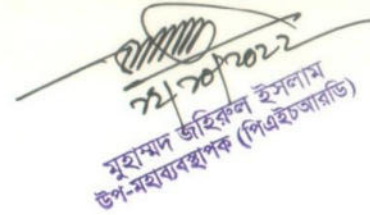 ১২/১০/২০২২
মুহাম্মদ জহিরুল ইসলাম
উপ-মহাব্যবস্থাপক (পিএইচআরডি)